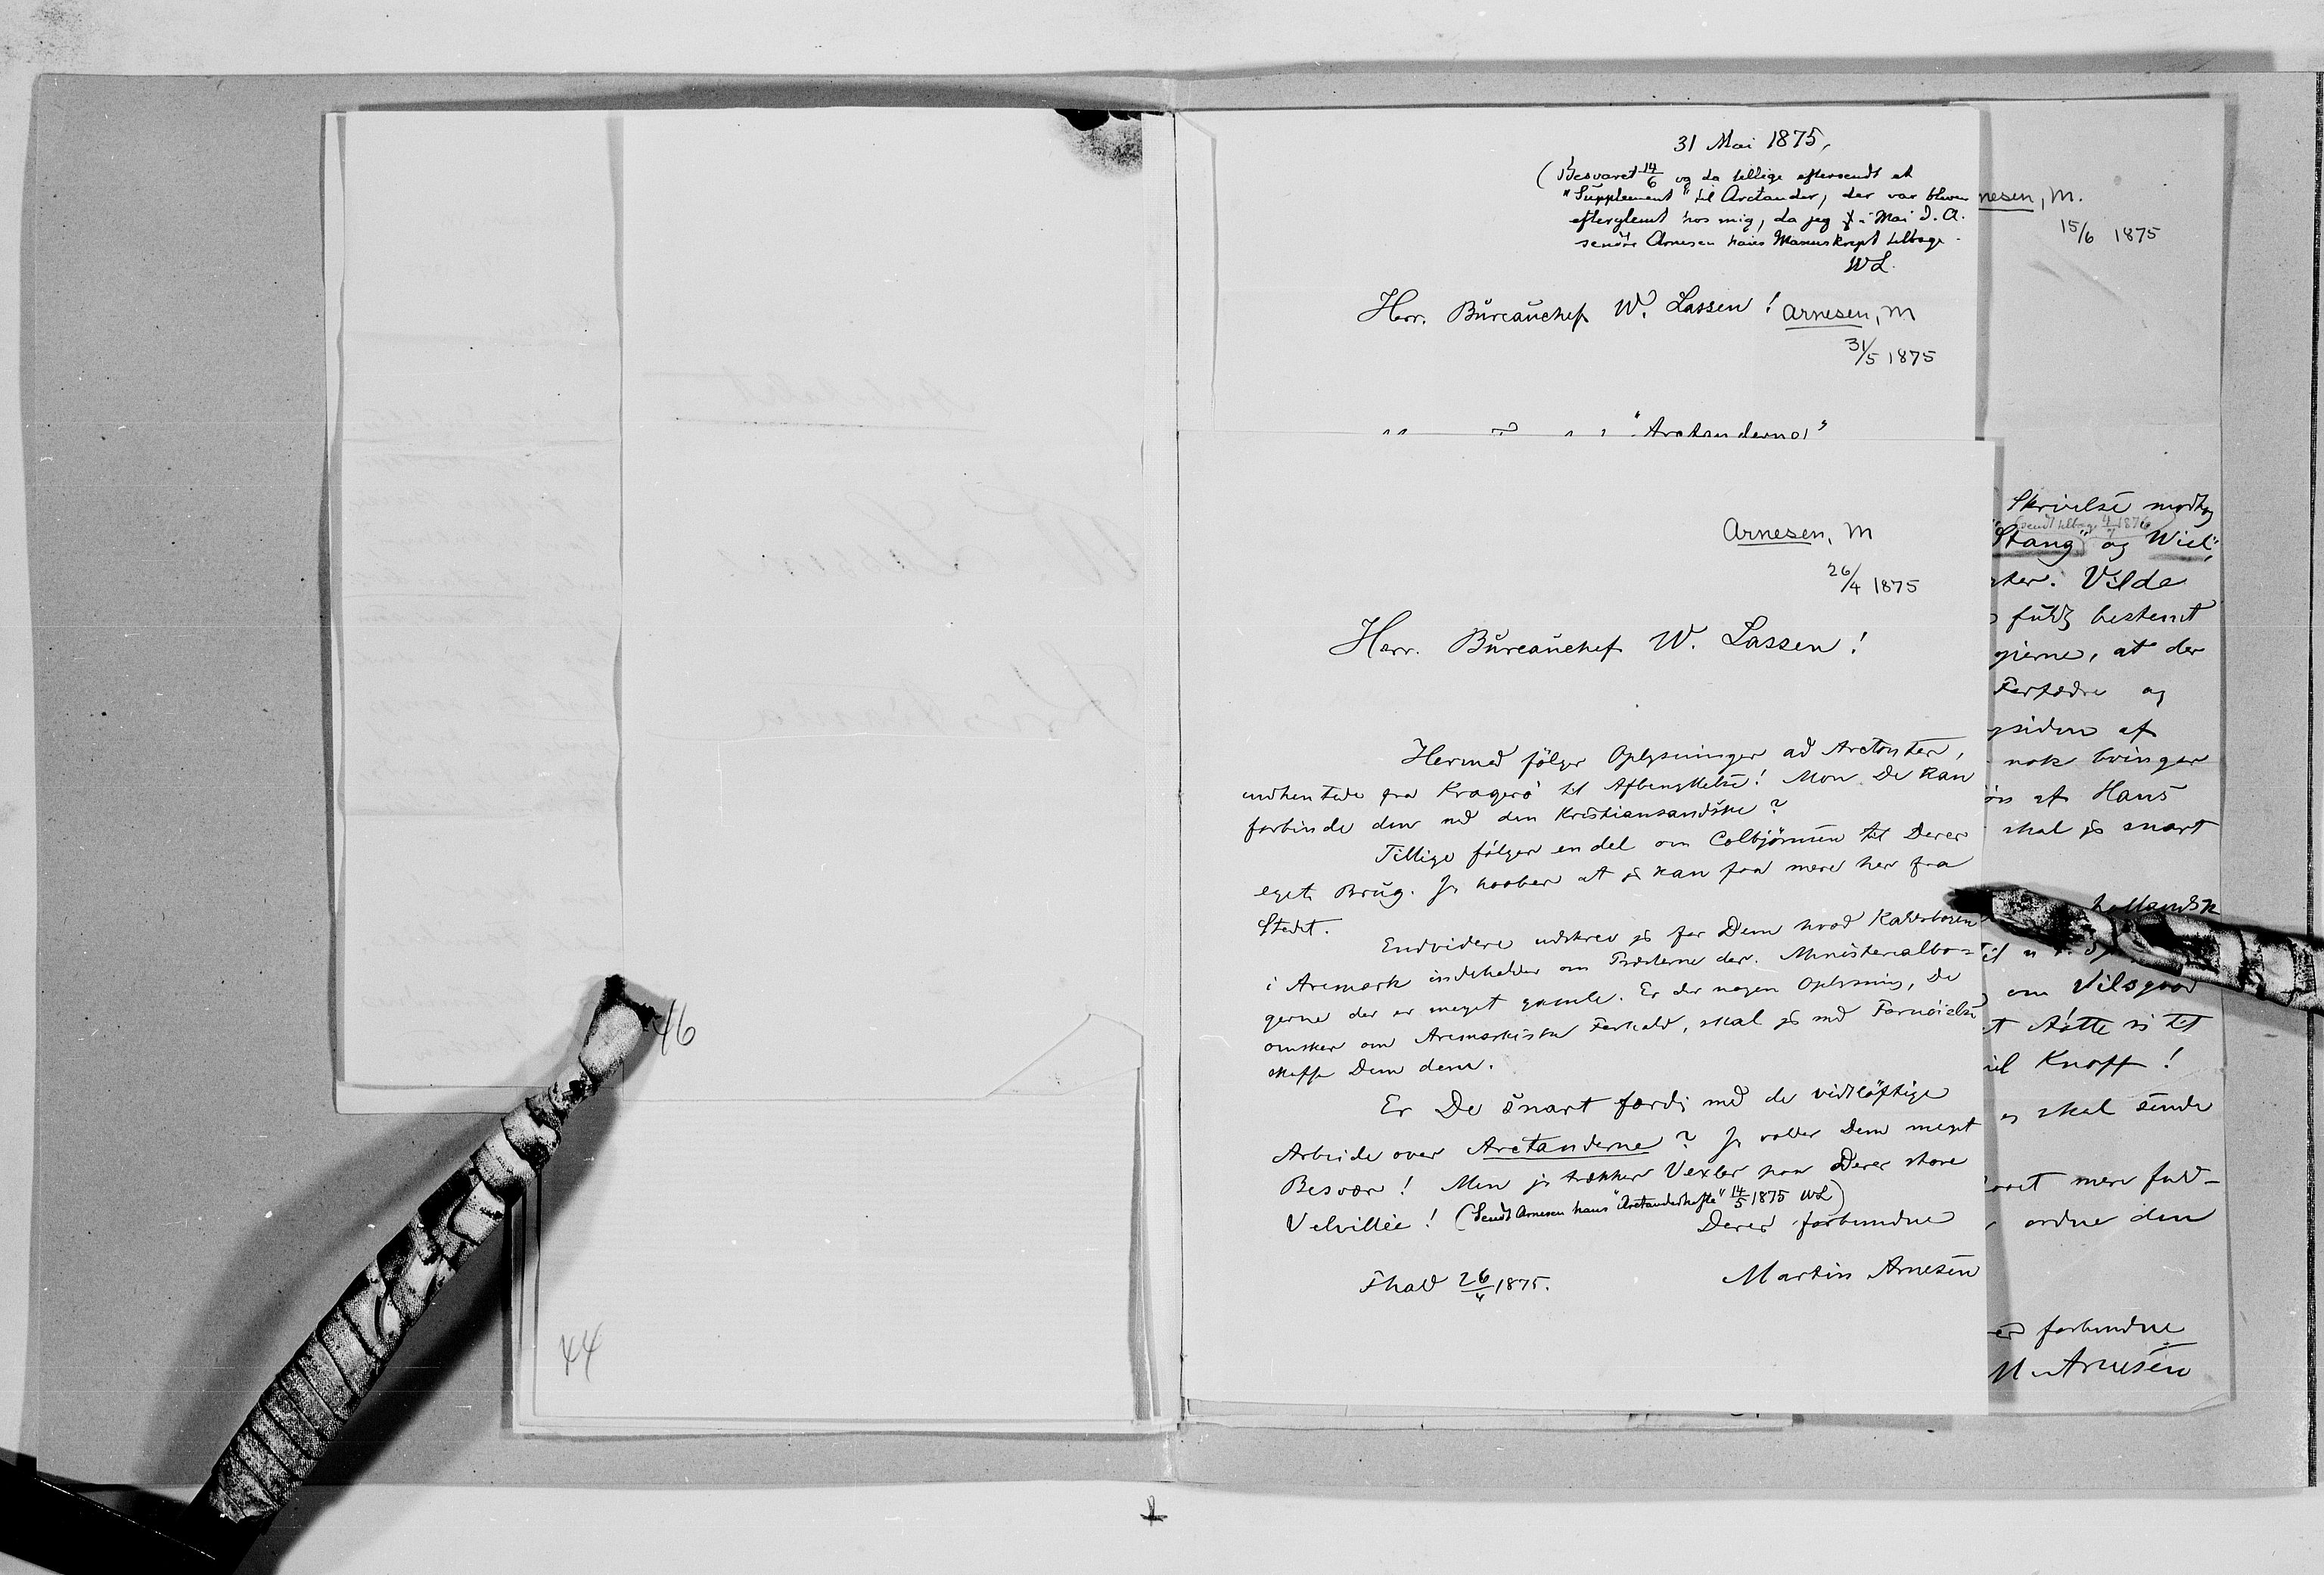 31 Mai 1875,
(Besvaret 14/6 og da tillige eftersendt et
"Supplement" til Arctander, der var bleven
efterglemt hos mig, da jeg i Mai d. A.
sendte Arnesen hans Manuskript tilbage.
WL.
Herr. Bŭreaŭchef W. Lassen!
Arnesen, M
31/5 1875
"Arctanderne"
Arnesen, M
26/4 1875
Herr. Bŭreaŭchef W. Lassen!
Hermed følger Oplysninger ad Arctander,
indhentede fra Kragerö til Afbenyttelse! Mon De kan
forbinde dem med den Kristiansandske?
Tillige følger en del om Colbjörnsen til Deres
eget Brŭg. Jeg haaber at jeg kan faa mere her fra
Stedet.
Endvidere udskrev jeg for Dem hvad Kaldsbogen
i Aremark indeholder om Præsterne der. Ministerialbo=
gerne der er meget gamle. Er der nogen Oplysning, De
ønsker om Aremarkiske Forhold, skal jeg med Fornöielse
skaffe Dem dem.
Er De snart færdig med de vidtlöftige
Arbeide over Arctanderne? Jeg volder Dem meget
Besvær! Men jeg trækker Vexler paa Deres store
Velvillie! (Sendt Arnesen hans "Arctanderhefte" 14/5 1875 WL)
Deres forbundne
Martin Arnesen
Fhald 26/4 1875.
nesen, M.
15/6 1875
Skrivelse modtog
sendt tilbage 4/7 1876
Stang" og Wiel",
ter. Vilde
fŭldt bestemt
gierne, at der
Forfædre og
siden af
nok bringer
af Hans
skal jeg snart
hollandsk
om Vilsgaard
t Aatte is til
til Knoff!
jeg skal sende
aaret mere fuld-
ordne den
forbundne
M. Arnesen
46
44